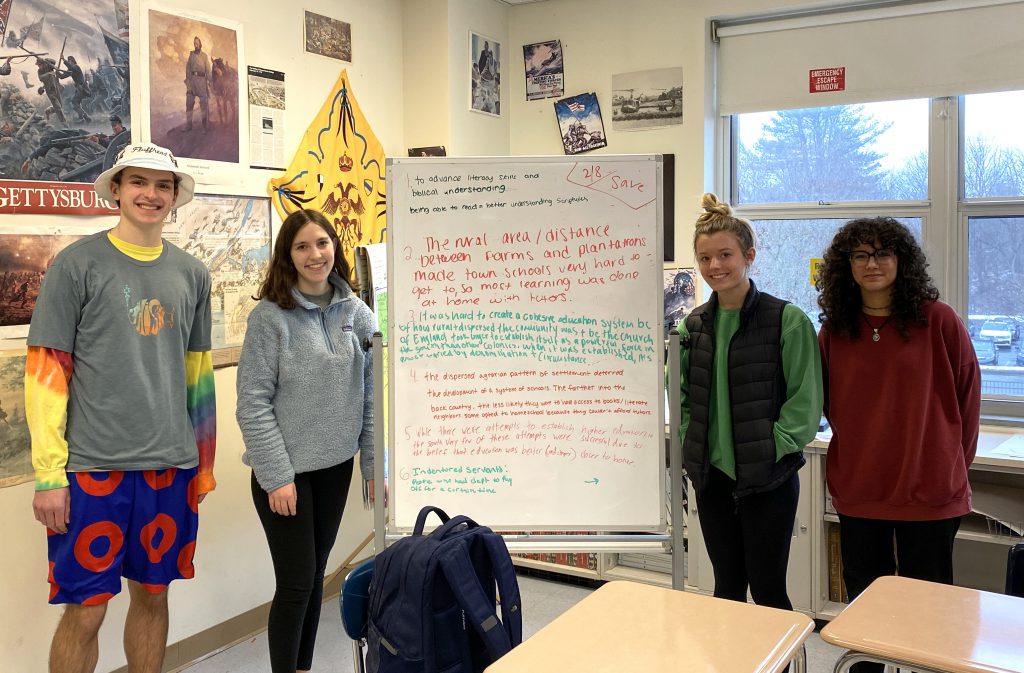 GETTYSBURG
Fluffhead
EMERGENCY
ESCAPE
WINDOW
2/8 Save
1. to advance literacy skills and
biblical understanding.
being able to read & better understand Scriptures
2. The rural area/distance
between farms and plantations
made town schools very hard to
get to, so most learning was done
at home with tutors.
3. It was hard to create a cohesive education system bc
of how rural + dispersed the community was + bc the church
of England took longer to establish itself as a powerful force in
the southern colonies. when it was established, it's
varied by denomination + circumstance.
4. the dispersed agrarian pattern of settlement deterred
the development of a system of schools. The further into the
back country, the less likely they were to have access to books/literate
neighbors some opted to homeschool because they couldn't afford tutors
5. While there were attempts to establish higher education in
the south very few of these attempts were successful due to
the belief that education was better closer to home.
6. Indentured servants:
who had debt to pay
off for a certain time